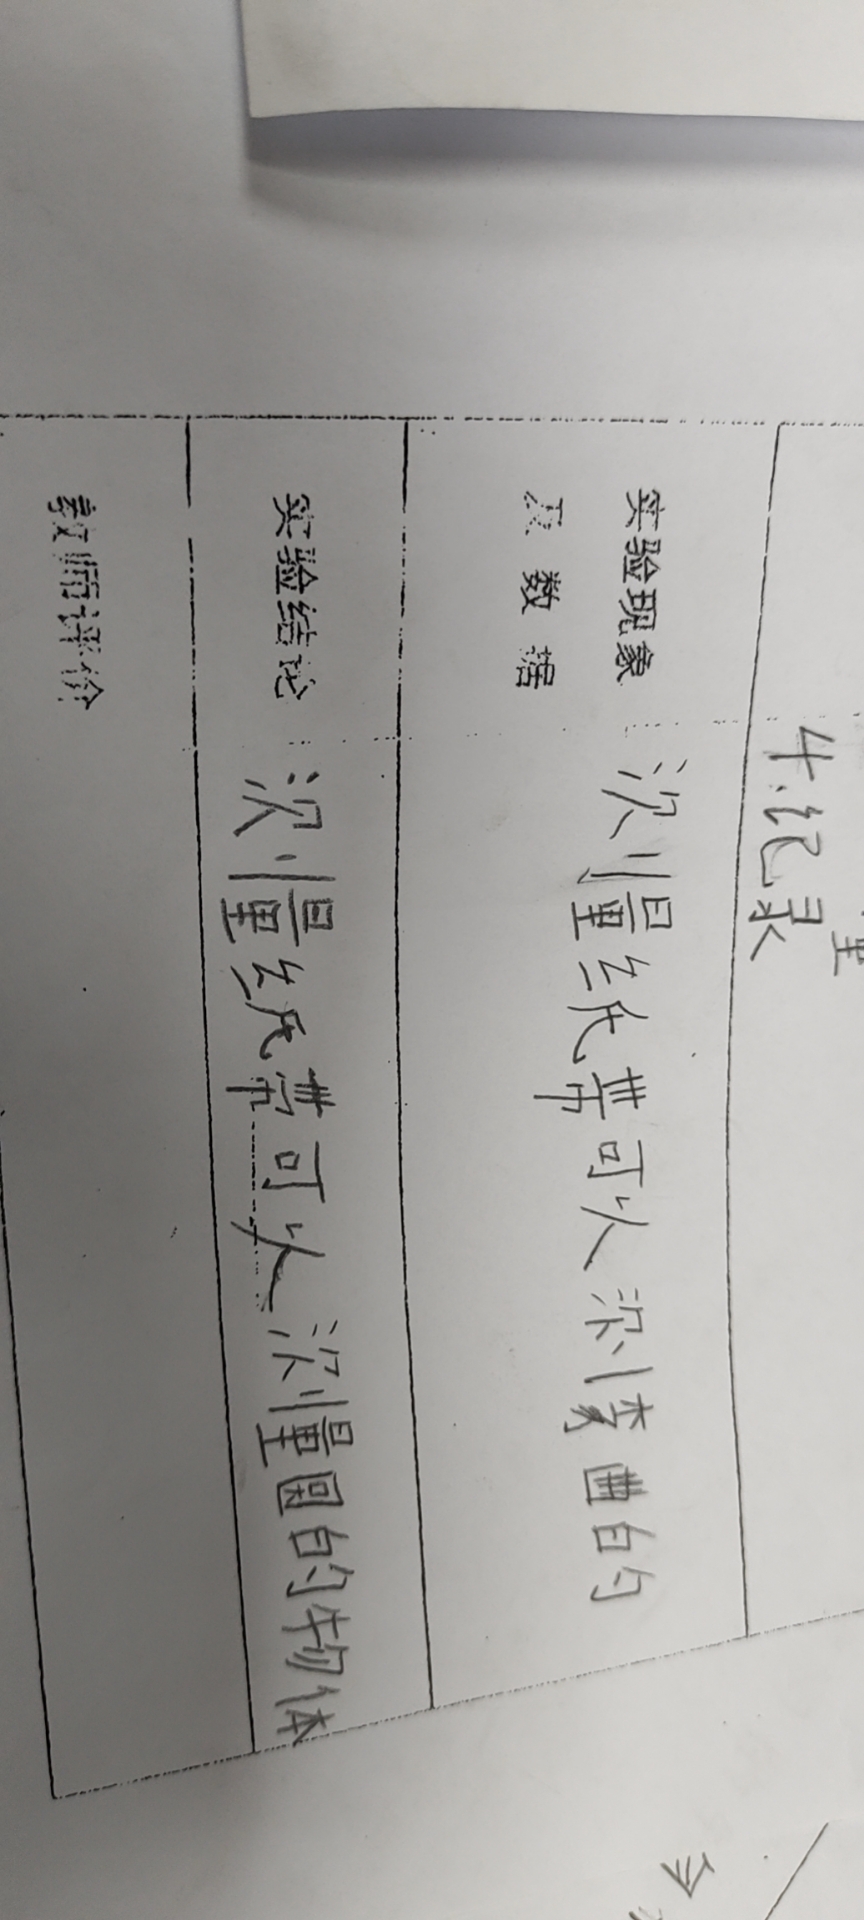 4.纪录
实验现象
及数据
测量纸带可以测弯曲的
实验结论
测量纸带可以测量圆的物体
教师评价